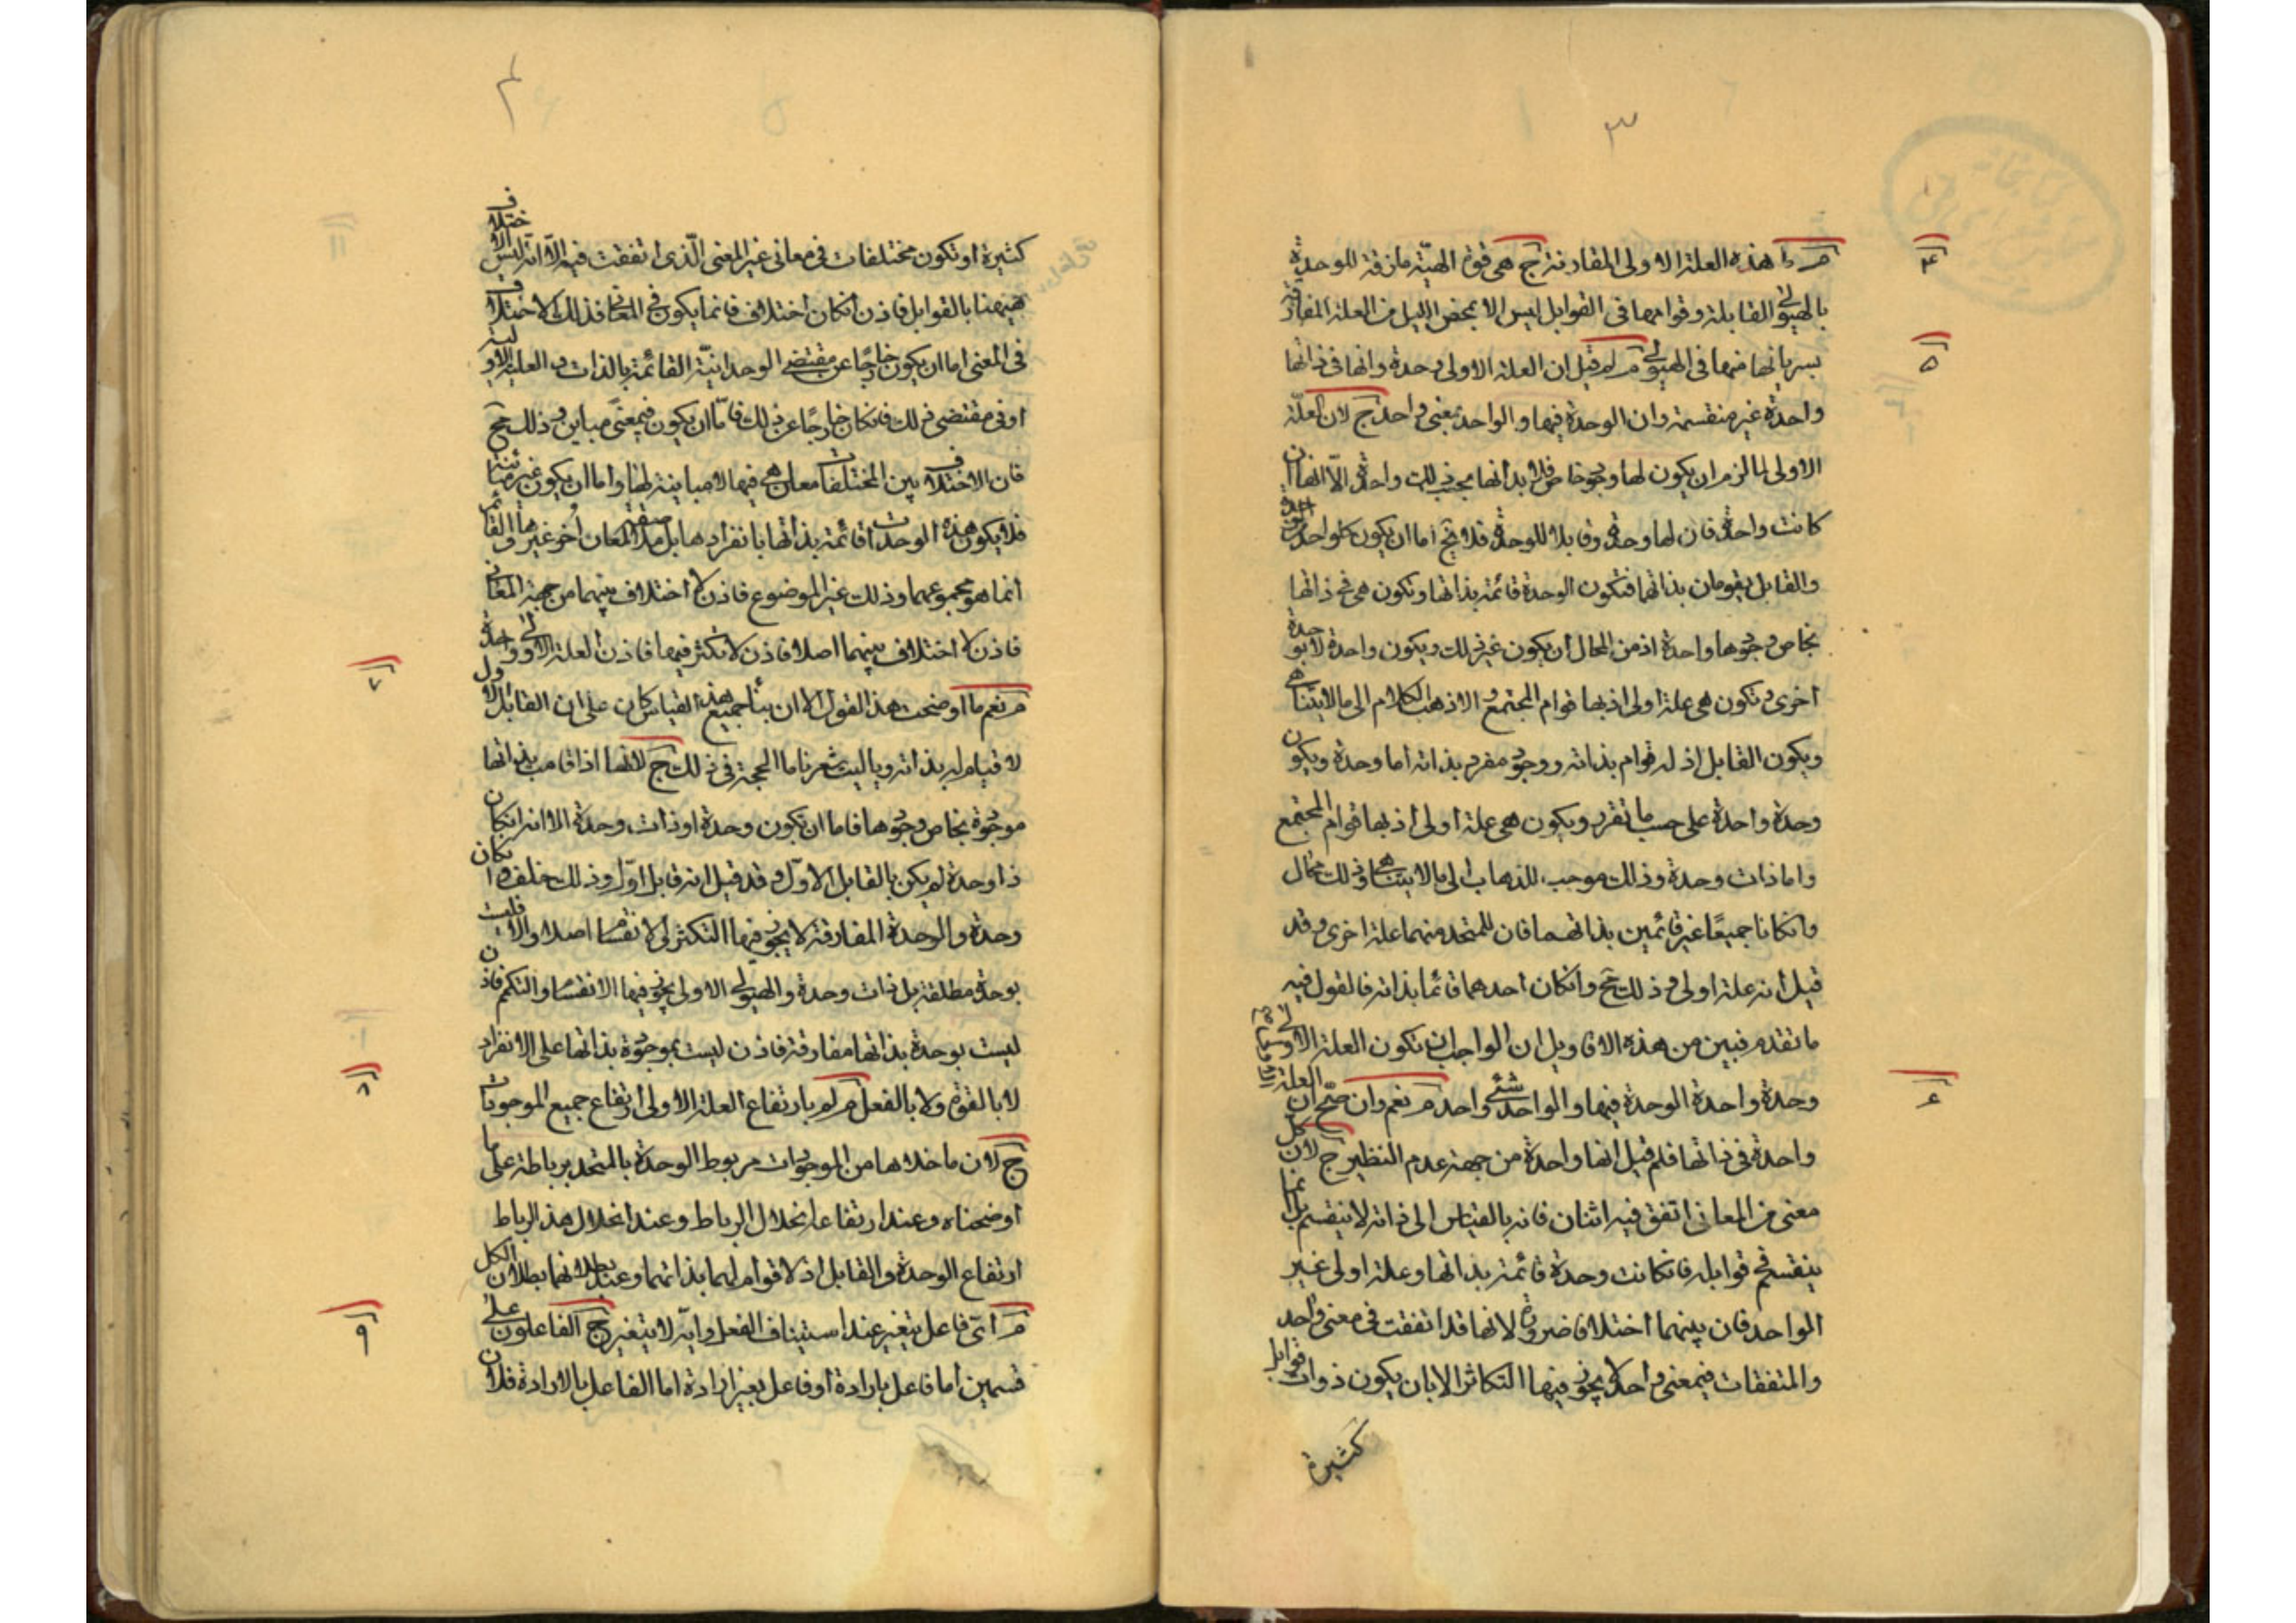 ٣
٤
م ما هذه العلة الاولى المفادة ج هى قوة الهية مازقة للوحدة
بالهيولى القابلة وقوامها فى القوابل ليس الا بمحض النيل من العلة
٥
بسريانها منها فى الهيولى م لم قيل ان العلة الاولى وحدة وانها فى ذاتها
واحدة غير منقسمة وان الوحدة فيها والواحد بمعنى واحد ج لان العلة
الاولى لما لزم ان يكون لها وجود خاص فلا بد انها بحسب ذلك واحدة الا انها ان
كانت واحدة فان لها وحدة وقابلا للوحدة فلا يخ اما ان يكون كلواحد من الوحدة
والقابل يقومان بذاتهما فتكون الوحدة قائمة بذاتها وتكون هى فى ذاتها
بخاص وجودها واحدة اذ من المحال ان يكون غير ذلك ويكون واحدة لا بوحدة
اخرى وتكون هى علة اولى اذ بها قوام المجتمع والا ذهب الكلام الى ما لا يتناهى
ويكون القابل اذ له قوام بذاته ووجود مفرد بذاته اما وحدة ويكون
وحدة واحدة على حسب ما تفرد ويكون هى علة اولى اذ بها قوام المجتمع
واما ذات وحدة وذلك موجب للذهاب الى ما لا يتناهى وذلك محال
وانكانا جميعًا غير قائمين بذاتهما فان للمتحد منهما علة اخرى وقد
قيل انه علة اولى وذلك مح وانكان احدهما قائما بذاته فالقول فيه
ما تقدم فبين من هذه الاقاويل ان الواجب ان تكون العلة الاولى
٦
وحدة واحدة الوحدة فيها والواحد شئ واحد م نعم وان صح ان العلة
واحدة فى ذاتها فلم قيل انها واحدة من جهة عدم النظير ج لان كل
معنى من المعانى اتفق فيه اثنان فانه بالقياس الى ذاته لا ينقسم بل انما
ينقسم فى قوابله فانكانت وحدة قائمة بذاتها وعلة اولى غير
الواحد فان بينهما اختلافا ضرورة لانها قد اتفقت فى معنى واحد
والمتفقات فيمعنى واحد لا يجوز فيها التكاثر الا بان يكون ذوات قوابل
كثيرة
٤
كثيرة او تكون مختلفات فى معانى غير المعنى الّذى اتفقت فيه الّا انه ليس الاختلاف
هيهنا بالقوابل فاذن انكان اختلاف فانما يكون فى المعانى فذلك الاختلاف
فى المعنى اما ان يكون خارجًا عن مقتضى الوحدانيّة القائمة بالذات والعلية الاولية
او فى مقتضى ذلك فانكان خارجًا عن ذلك فامّا ان يكون فيمعنى مباين وذلك مح
فان الاختلاف بين المختلفات معان هى فيها لا مباينة لها واما ان يكون غير مباينة
فلا يكون هذه الوحدات قائمة بذاتها بانفرادها بل ملاصقة لمعان اُخر غيرها والقائم
انما هو مجموعهما وذلك غير الموضوع فاذن لا اختلاف بينهما من جهة المعانى
٧
فاذن لا اختلاف بينهما اصلا فاذن لا تكثر فيها فاذن العلة الاولى واحدة
م نعم ما اوضحت هذا القول الا ان بناء جميع هذا القياس كان على ان القابل الاول
لا قيام له بذاته ويا ليت شعرنا ما الحجة فى ذلك ج لانها اذا قامت بذاتها
موجودة بخاص وجودها فاما ان يكون وحدة او ذات وحدة الا انه انكان
ذا وحدة لم يكن بالقابل الاوّل وقد قيل انه قابل اوّل وذلك خلف وانكان
وحدة والوحدة المفارقة لا يجوز فيها التكثر لى لا انقساما اصلا والا فليست
بوحدة مطلقة بل ذات وحدة والهيولى الاولى يجوز فيها الانقسام والتكمم فاذن
ليست بوحدة بذاتها مفارقة فاذن ليست بموجودة بذاتها على الانفراد
٨
لا بالقوة ولا بالفعل م لم بارتفاع العلة الاولى ارتفاع جميع الموجودات
ج لان ما خلاها من الموجودات مربوط الوحدة بالمتحد برباطة على ما
اوضحناه وعند ارتفاعا انحلال الرباط وعند انحلال هذا الرباط
ارتفاع الوحدة والقابل اذ لا قوام لهما بذاتهما وعند بطلانهما بطلان الكل
٩
م اىّ فاعل يتغير عند استيناف الفعل وايّه لا يتغير ج الفاعلون على
قسمين اما فاعل بارادة او فاعل بغير ارادة اما الفاعل بالارادة فلان